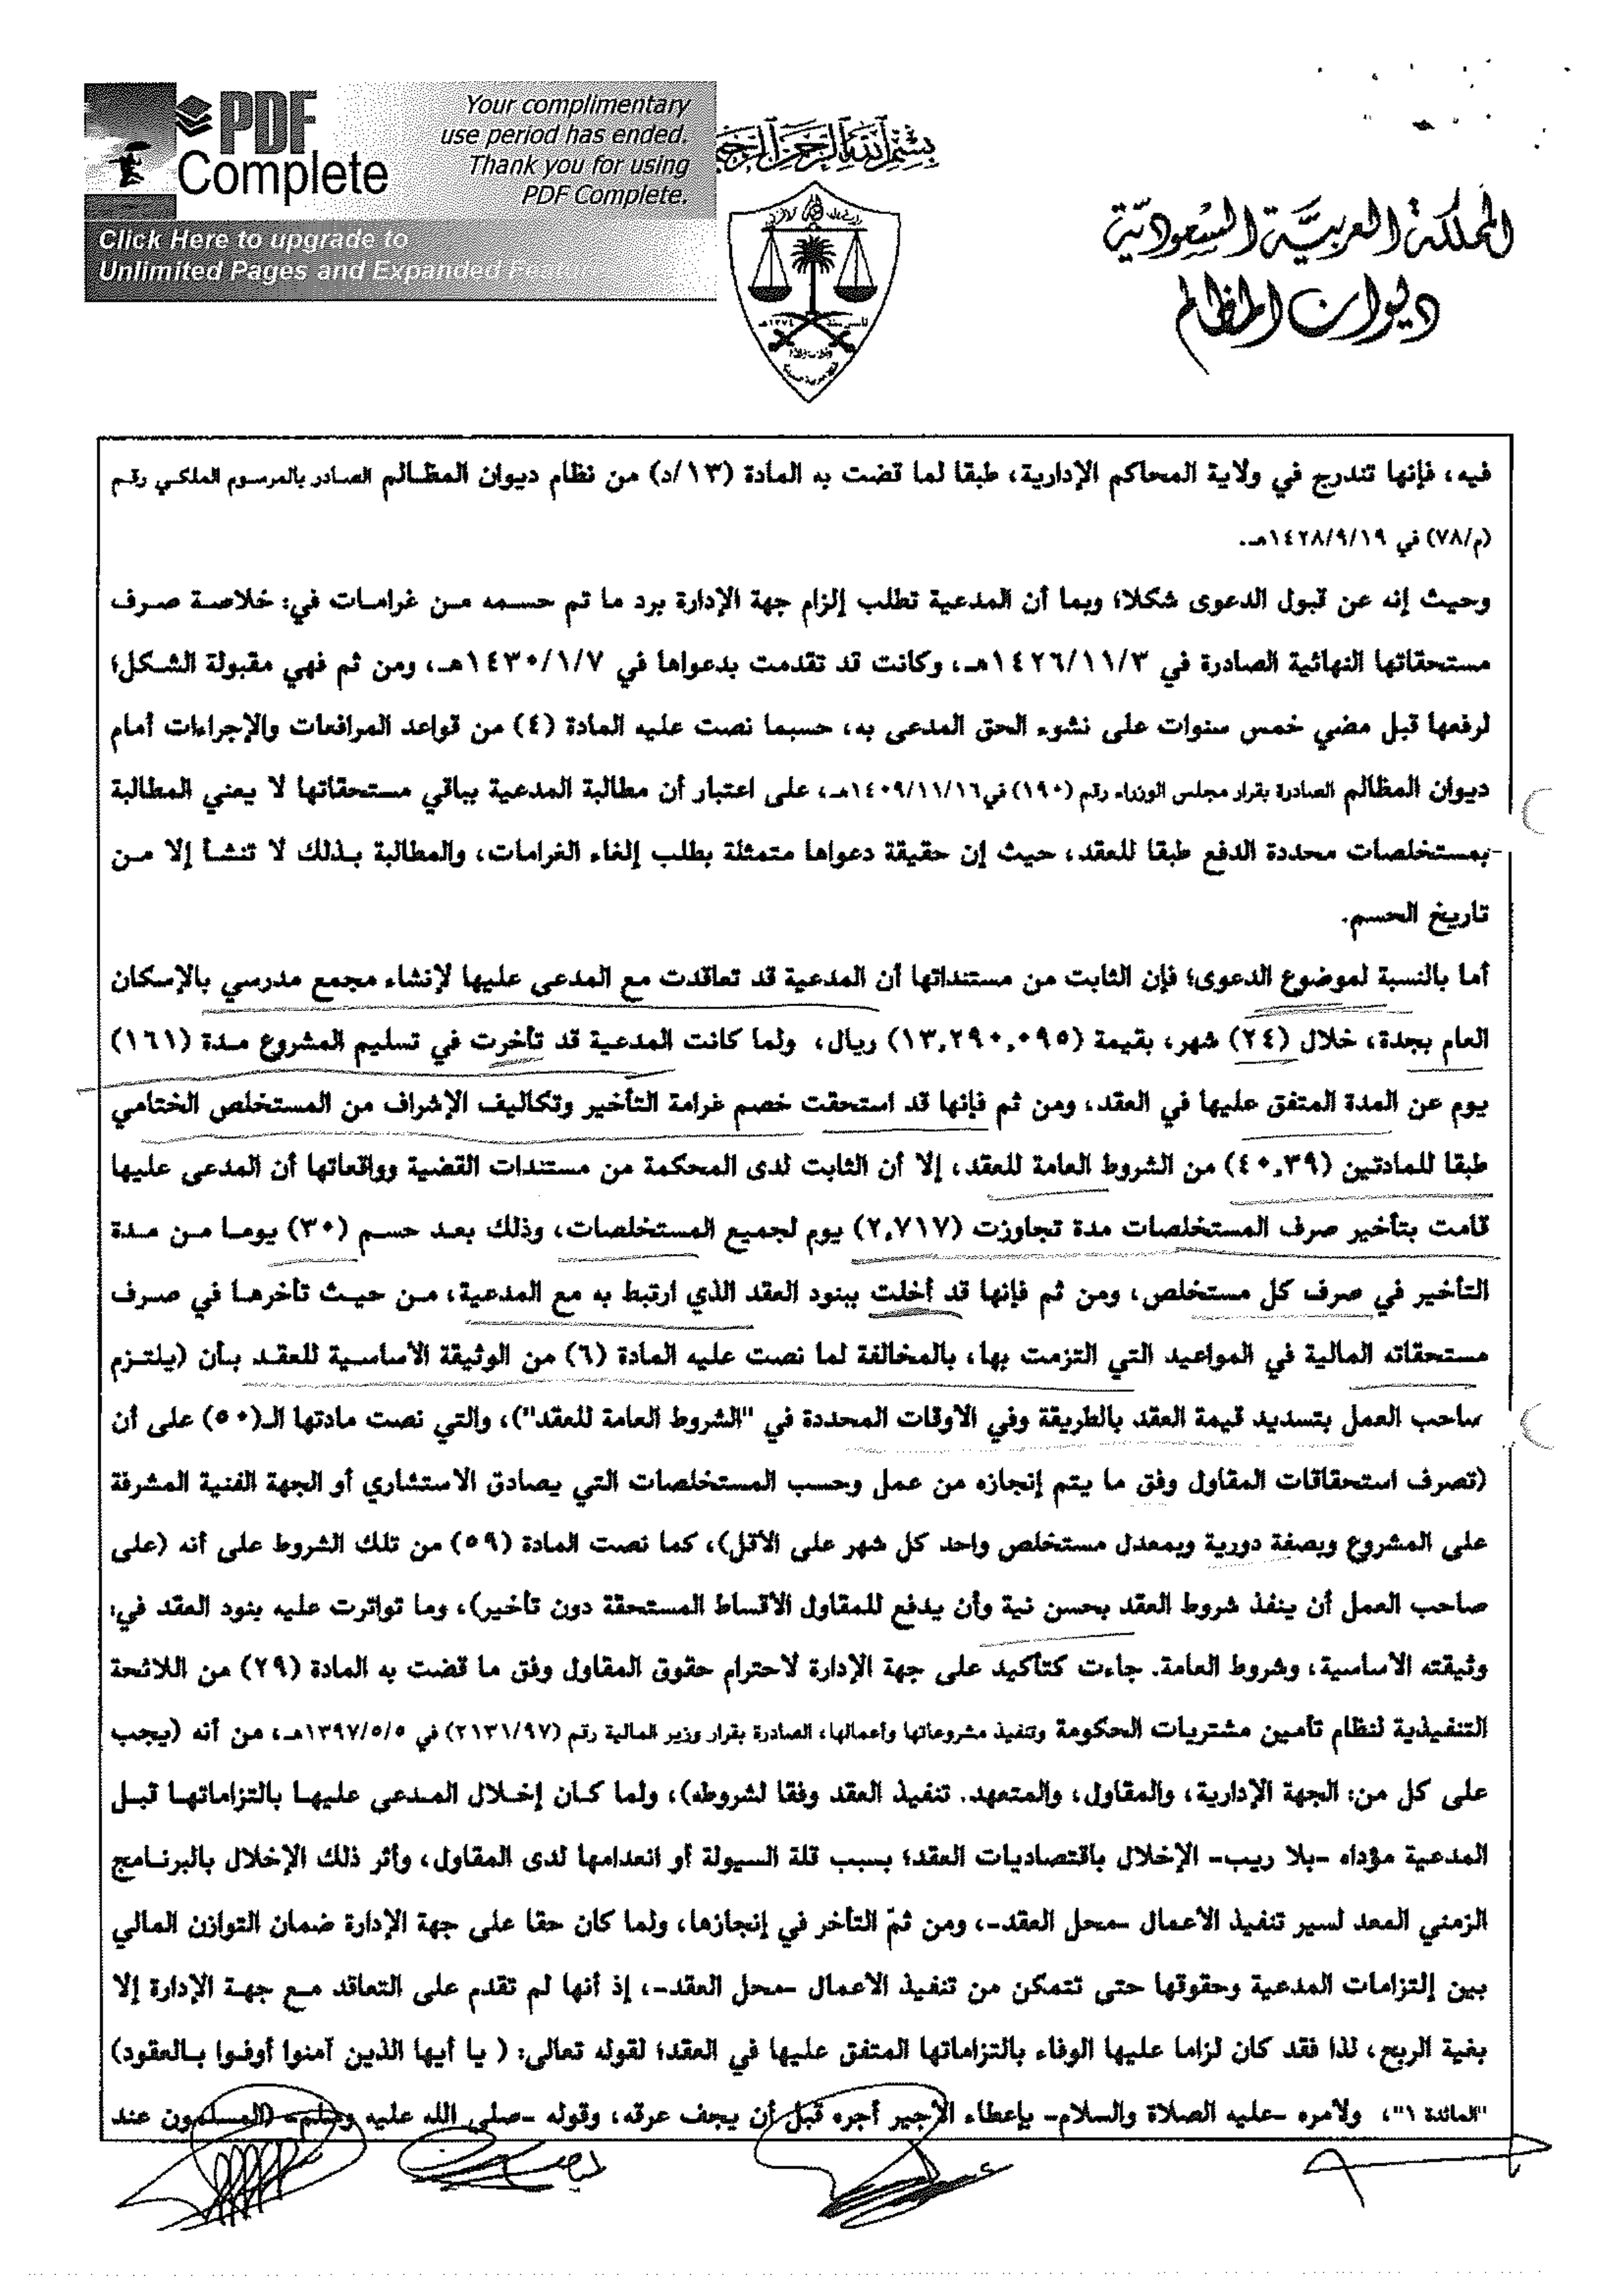 PDF Complete
Your complimentary
use period has ended.
Thank you for using
PDF Complete.
Click Here to upgrade to
Unlimited Pages and Expanded Features
بسم الله الرحمن الرحيم
المملكة العربية السعودية
ديوان المظالم
فيه، فإنها تندرج في ولاية المحاكم الإدارية، طبقا لما قضت به المادة (١٣/د) من نظام ديوان المظالم الصادر بالمرسوم الملكي رقم
(م/٧٨) في ١٤٢٨/٩/١٩هـ.
وحيث إنه عن قبول الدعوى شكلا؛ وبما أن المدعية تطلب إلزام جهة الإدارة برد ما تم حسمه من غرامات في: خلاصة صرف
مستحقاتها النهائية الصادرة في ١٤٢٦/١١/٣هـ، وكانت قد تقدمت بدعواها في ١٤٣٠/١/٧هـ، ومن ثم فهي مقبولة الشكل؛
لرفعها قبل مضي خمس سنوات على نشوء الحق المدعى به، حسبما نصت عليه المادة (٤) من قواعد المرافعات والإجراءات أمام
ديوان المظالم الصادرة بقرار مجلس الوزراء رقم (١٩٠) في١٤٠٩/١١/١٦هـ، على اعتبار أن مطالبة المدعية بباقي مستحقاتها لا يعني المطالبة
بمستخلصات محددة الدفع طبقا للعقد، حيث إن حقيقة دعواها متمثلة بطلب إلغاء الغرامات، والمطالبة بذلك لا تنشأ إلا من
تاريخ الحسم.
أما بالنسبة لموضوع الدعوى؛ فإن الثابت من مستنداتها أن المدعية قد تعاقدت مع المدعى عليها لإنشاء مجمع مدرسي بالإسكان
العام بجدة، خلال (٢٤) شهر، بقيمة (١٣,٢٩٠,٠٩٥) ريال، ولما كانت المدعية قد تأخرت في تسليم المشروع مدة (١٦١)
يوم عن المدة المتفق عليها في العقد، ومن ثم فإنها قد استحقت خصم غرامة التأخير وتكاليف الإشراف من المستخلص الختامي
طبقا للمادتين (٤٠,٣٩) من الشروط العامة للعقد، إلا أن الثابت لدى المحكمة من مستندات القضية وواقعاتها أن المدعى عليها
قامت بتأخير صرف المستخلصات مدة تجاوزت (٢,٧١٧) يوم لجميع المستخلصات، وذلك بعد حسم (٣٠) يوما من مدة
التأخير في صرف كل مستخلص، ومن ثم فإنها قد أخلت ببنود العقد الذي ارتبط به مع المدعية، من حيث تأخرها في صرف
مستحقاته المالية في المواعيد التي التزمت بها، بالمخالفة لما نصت عليه المادة (٦) من الوثيقة الأساسية للعقد بأن (يلتزم
ساحب العمل بتسديد قيمة العقد بالطريقة وفي الأوقات المحددة في "الشروط العامة للعقد")، والتي نصت مادتها الـ(٥٠) على أن
(تصرف استحقاقات المقاول وفق ما يتم إنجازه من عمل وحسب المستخلصات التي يصادق الاستشاري أو الجهة الفنية المشرفة
على المشروع وبصفة دورية وبمعدل مستخلص واحد كل شهر على الأقل)، كما نصت المادة (٥٩) من تلك الشروط على أنه (على
صاحب العمل أن ينفذ شروط العقد بحسن نية وأن يدفع للمقاول الأقساط المستحقة دون تأخير)، وما تواترت عليه بنود العقد في:
وثيقته الأساسية، وشروط العامة. جاءت كتأكيد على جهة الإدارة لاحترام حقوق المقاول وفق ما قضت به المادة (٢٩) من اللائحة
التنفيذية لنظام تأمين مشتريات الحكومة وتنفيذ مشروعاتها وأعمالها، الصادرة بقرار وزير المالية رقم (٢١٣١/٩٧) في ١٣٩٧/٥/٥هـ، من أنه (يجب
على كل من: الجهة الإدارية، والمقاول، والمتعهد. تنفيذ العقد وفقا لشروطه)، ولما كان إخلال المدعى عليها بالتزاماتها قبل
المدعية مؤداه -بلا ريب- الإخلال باقتصاديات العقد؛ بسبب قلة السيولة أو انعدامها لدى المقاول، وأثر ذلك الإخلال بالبرنامج
الزمني المعد لسير تنفيذ الأعمال -محل العقد-، ومن ثمّ التأخر في إنجازها، ولما كان حقا على جهة الإدارة ضمان التوازن المالي
بين إلتزامات المدعية وحقوقها حتى تتمكن من تنفيذ الأعمال -محل العقد-، إذ أنها لم تقدم على التعاقد مع جهة الإدارة إلا
بغية الربح، لذا فقد كان لزاما عليها الوفاء بالتزاماتها المتفق عليها في العقد؛ لقوله تعالى: ( يا أيها الذين آمنوا أوفوا بالعقود)
"المائدة ١"، ولأمره -عليه الصلاة والسلام- بإعطاء الأجير أجره قبل أن يجف عرقه، وقوله -صلى الله عليه وسلم- (المسلمون عند